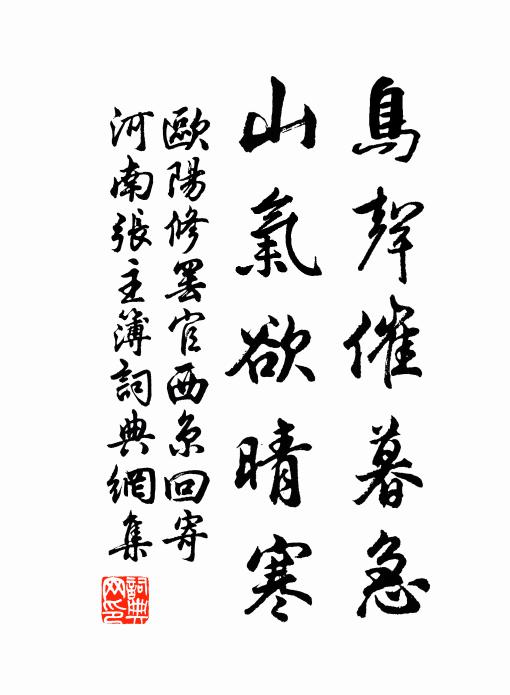 鳥聲催暮急
山氣欲晴寒
歐陽修罷官西京回寄
河南張主簿詞典網集